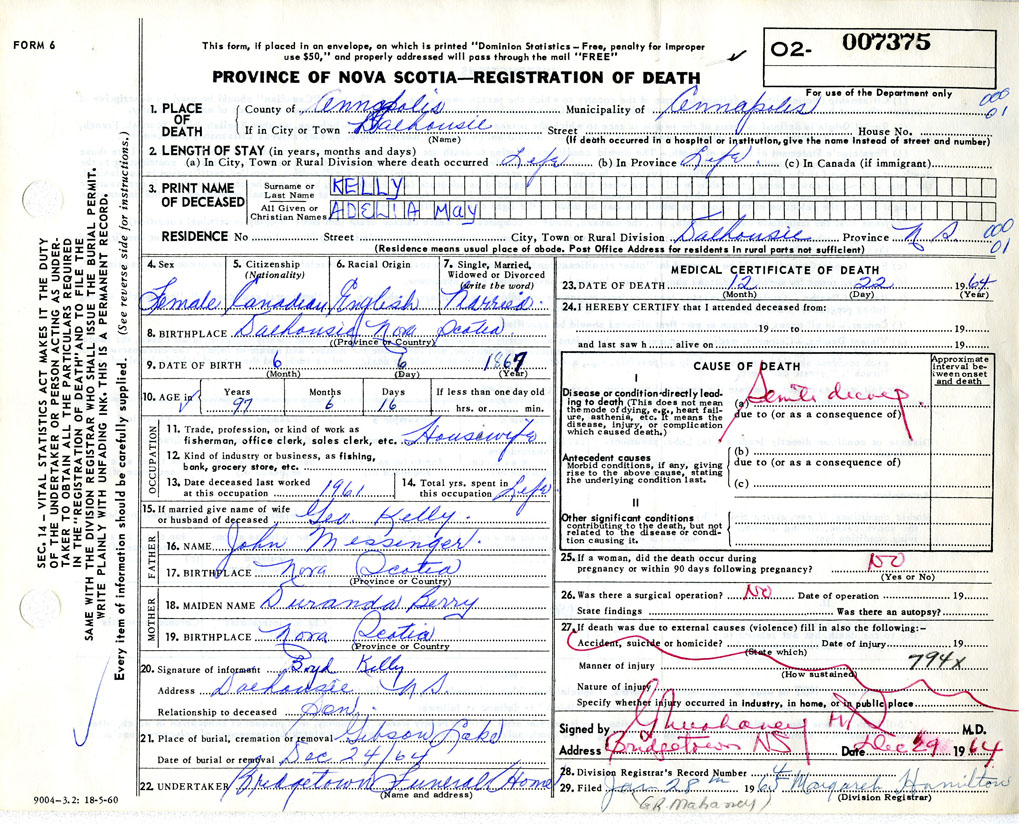 FORM 6
This form, if placed in an envelope, on which is printed "Dominion Statistics – Free, penalty for improper
use $50," and properly addressed will pass through the mail "FREE"
O2- 007375
PROVINCE OF NOVA SCOTIA—REGISTRATION OF DEATH
For use of the Department only
000
01
1. PLACE OF DEATH
County of Annapolis Municipality of Annapolis
If in City or Town Dalhousie Street House No.
(Name) (If death occurred in a hospital or institution, give the name instead of street and number)
2. LENGTH OF STAY (in years, months and days)
(a) In City, Town or Rural Division where death occurred Life (b) In Province Life. (c) In Canada (if immigrant)
3. PRINT NAME OF DECEASED
Surname or Last Name KELLY
All Given or Christian Names ADELIA May
RESIDENCE No Street City, Town or Rural Division Dalhousie Province N S.
000
01
(Residence means usual place of abode. Post Office Address for residents in rural parts not sufficient)
4. Sex 5. Citizenship (Nationality) 6. Racial Origin 7. Single, Married, Widowed or Divorced (Write the word)
Female Canadian English Married.
8. BIRTHPLACE Dalhousie Nova Scotia
(Province or Country)
9. DATE OF BIRTH 6 6 1867
(Month) (Day) (Year)
10. AGE in Years Months Days If less than one day old
97 6 16 hrs. or min.
OCCUPATION
11. Trade, profession, or kind of work as
fisherman, office clerk, sales clerk, etc. Housewife
12. Kind of industry or business, as fishing,
bank, grocery store, etc.
13. Date deceased last worked at this occupation 1961 14. Total yrs. spent in this occupation Life
15. If married give name of wife
or husband of deceased Geo Kelly.
FATHER
16. NAME John Messinger.
17. BIRTHPLACE Nova Scotia
(Province or Country)
MOTHER
18. MAIDEN NAME Duranda Berry
19. BIRTHPLACE Nova Scotia
(Province or Country)
20. Signature of informant Boyd Kelly
Address Dalhousie N S.
Relationship to deceased Son.
21. Place of burial, cremation or removal Gibson Lake
Date of burial or removal Dec 24/64
22. UNDERTAKER Bridgetown Funeral Home
(Name and address)
MEDICAL CERTIFICATE OF DEATH
23. DATE OF DEATH 12 22 1964
(Month) (Day) (Year)
24. I HEREBY CERTIFY that I attended deceased from:
19 to 19
and last saw h alive on 19
CAUSE OF DEATH
Approximate interval between onset and death
I
Disease or condition directly leading to death (This does not mean
the mode of dying, e.g., heart failure, asthenia, etc. It means the
disease, injury, or complication
which caused death.)
(a) Senile decay
due to (or as a consequence of)
Antecedent causes
Morbid conditions, if any, giving
rise to the above cause, stating
the underlying condition last.
(b)
due to (or as a consequence of)
(c)
II
Other significant conditions
contributing to the death, but not
related to the disease or condition causing it.
25. If a woman, did the death occur during
pregnancy or within 90 days following pregnancy? NO
(Yes or No)
26. Was there a surgical operation? NO Date of operation 19
State findings Was there an autopsy?
27. If death was due to external causes (violence) fill in also the following:-
Accident, suicide or homicide? Date of injury 19
(State which)
Manner of injury 794x
(How sustained)
Nature of injury
Specify whether injury occurred in industry, in home, or in public place
Signed by M.D.
Address Bridgetown NS Date Dec 29 1964
28. Division Registrar's Record Number 4
29. Filed Jan 28th 1965 Margaret Hamilton
(Division Registrar)
(GR. Mahaney)
SEC. 14 – VITAL STATISTICS ACT MAKES IT THE DUTY
OF THE UNDERTAKER OR PERSON ACTING AS UNDERTAKER TO OBTAIN ALL THE PARTICULARS REQUIRED
IN THE "REGISTRATION OF DEATH" AND TO FILE THE
SAME WITH THE DIVISION REGISTRAR WHO SHALL ISSUE THE BURIAL PERMIT.
WRITE PLAINLY WITH UNFADING INK. THIS IS A PERMANENT RECORD.
Every item of information should be carefully supplied. (See reverse side for instructions.)
9004–3.2: 18-5-60